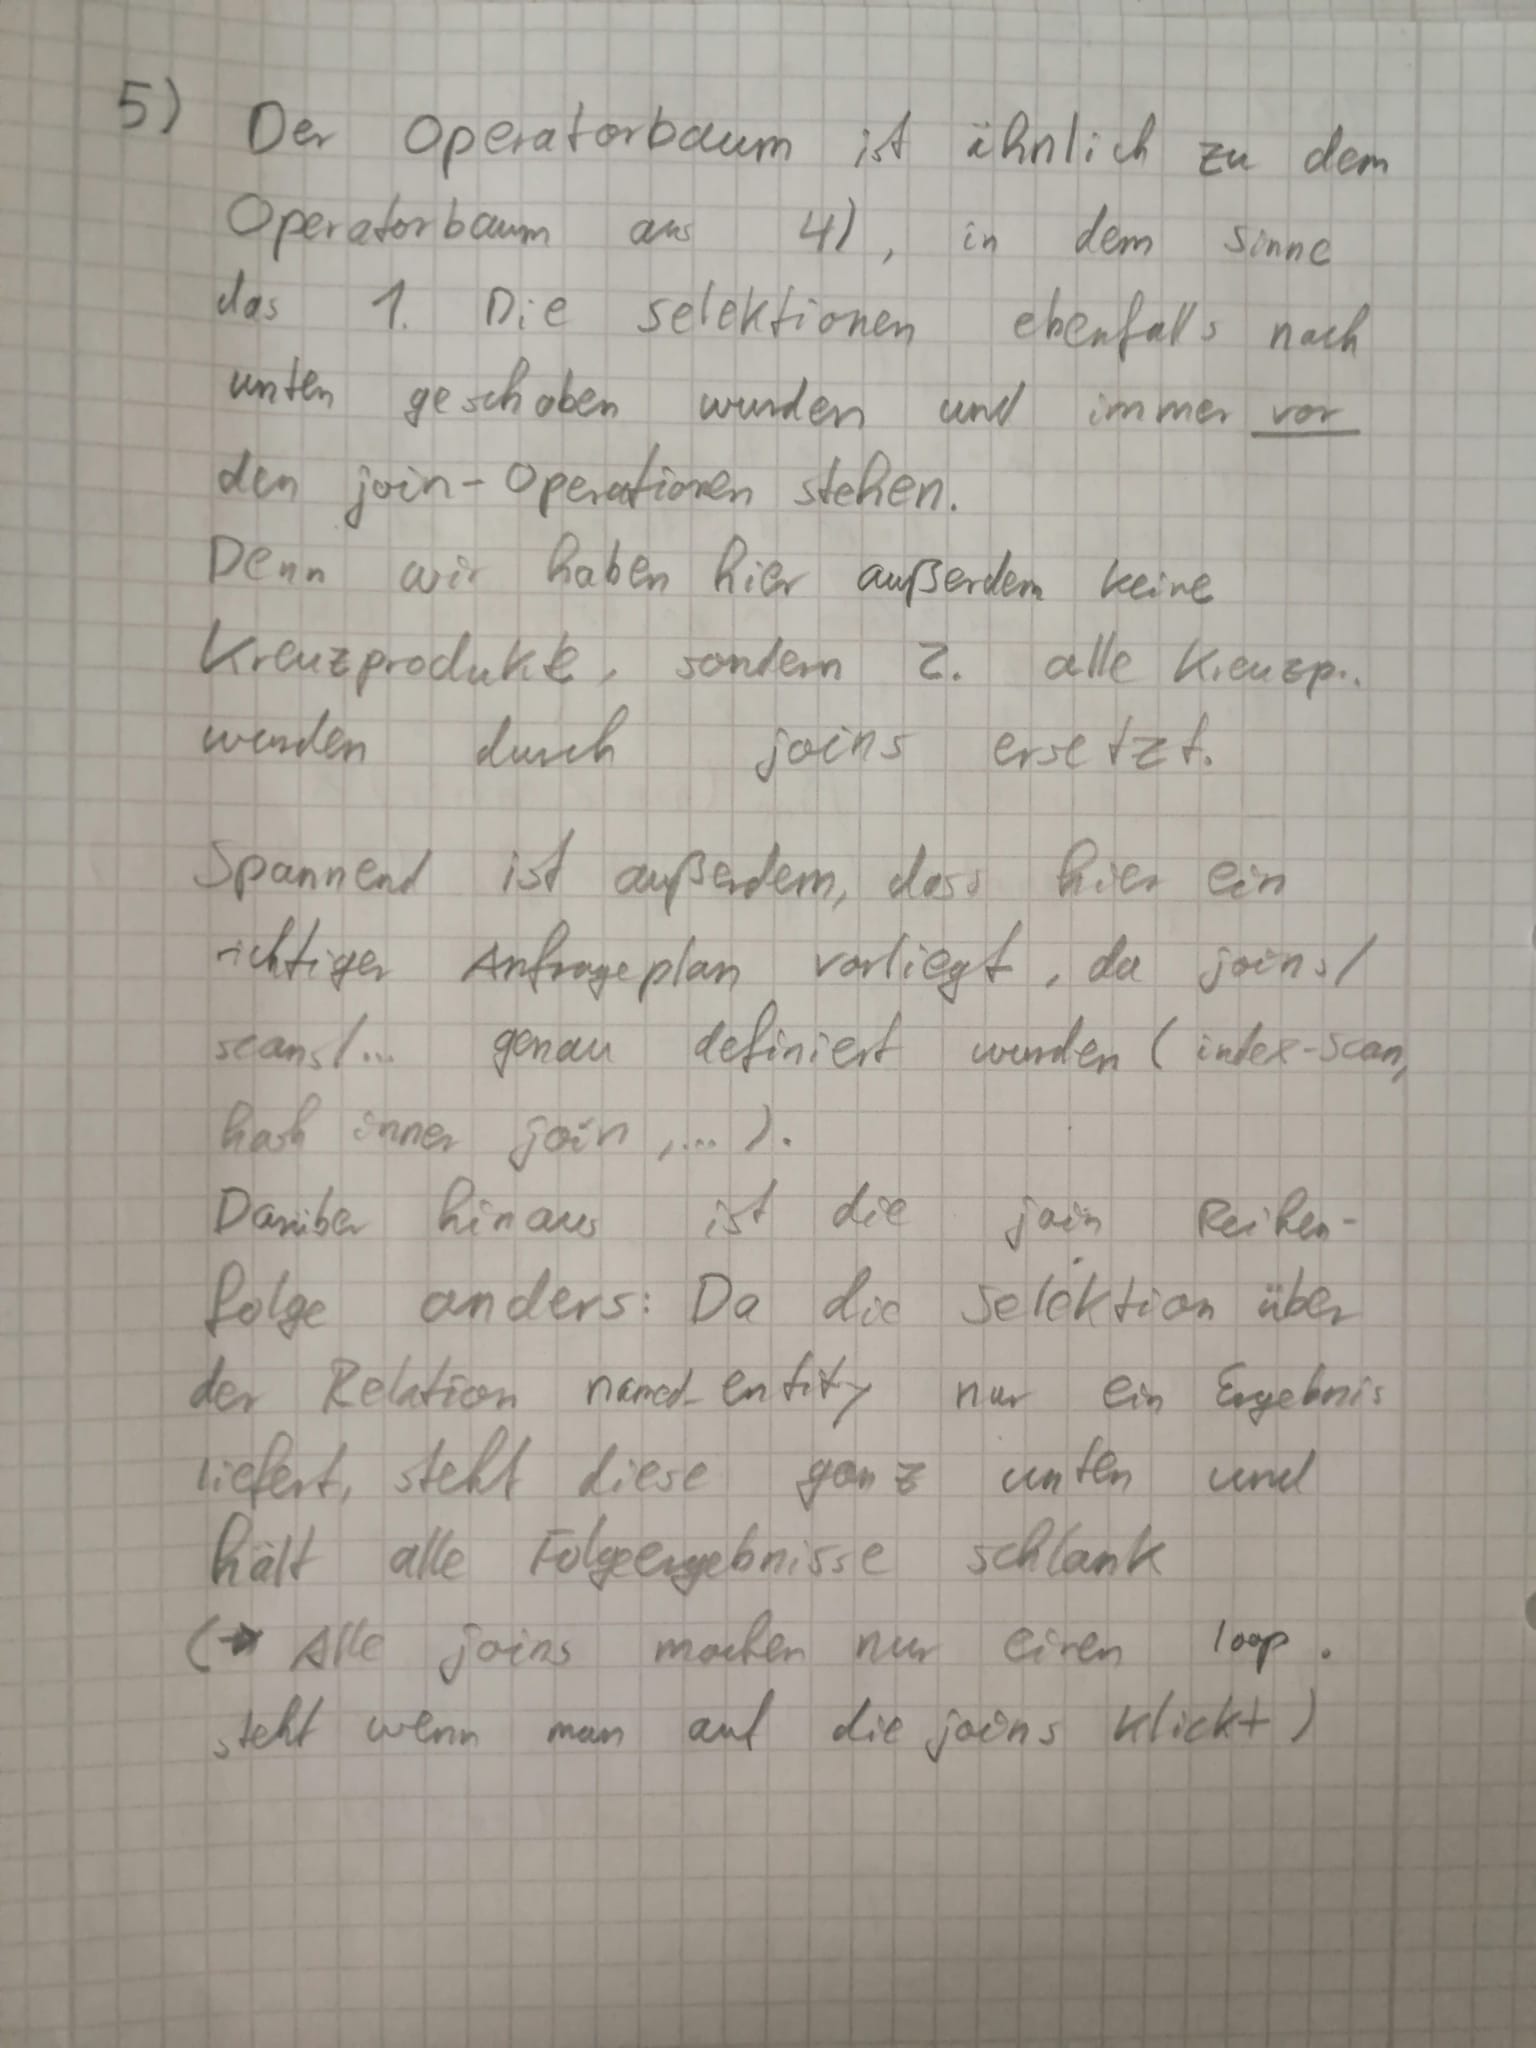 5) Der Operatorbaum ist ähnlich zu dem
Operatorbaum aus 4), in dem Sinne
das 1. Die selektionen ebenfalls nach
unten geschoben wurden und immer vor
den join-Operationen stehen.
Denn wir haben hier außerdem keine
Kreuzprodukte, sondern 2. alle Kreuzp..
wurden durch joins ersetzt.
Spannend ist außerdem, dass hier ein
richtiger Anfrageplan vorliegt, da joins/
scans/... genau definiert wurden (index-scan,
hash inner join,...).
Darüber hinaus ist die join Reihen-
folge anders: Da die selektion über
der Relation named_entity nur ein Ergebnis
liefert, steht diese ganz unten und
hält alle Folgeergebnisse schlank
(→ Alle joins machen nur einen loop.
steht wenn man auf die joins klickt)